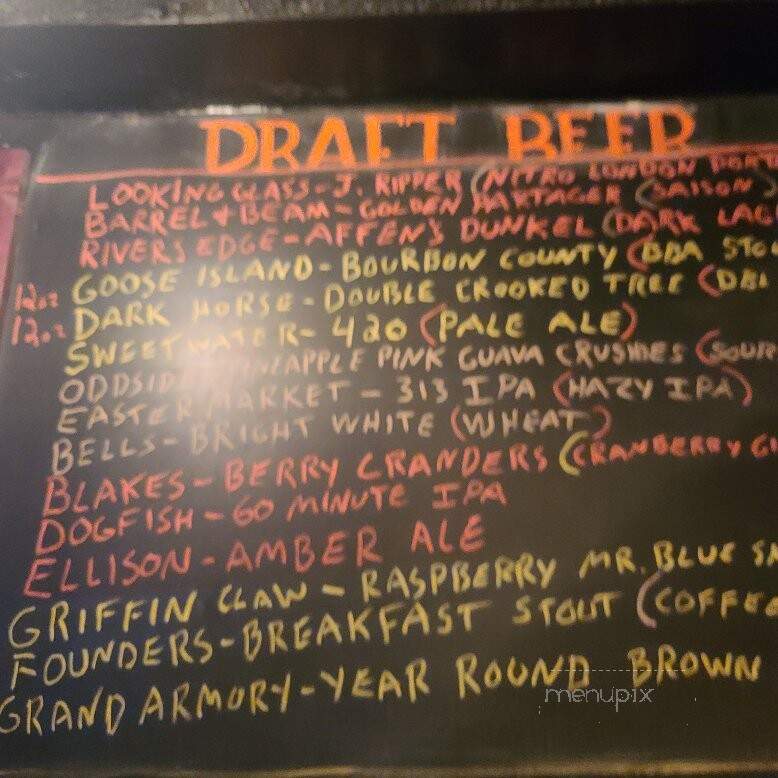 DRAFT BEER
LOOKING GLASS - J. RIPPER (NITRO LONDON PORT
BARREL + BEAM - GOLDEN PARTAGER (SAISON)
RIVERS EDGE - AFFEN'S DUNKEL (DARK LAG
12oz GOOSE ISLAND - BOURBON COUNTY (BBA STOU
12oz DARK HORSE - DOUBLE CROOKED TREE (DBL
SWEETWATER - 420 (PALE ALE)
ODDSID PINEAPPLE PINK GUAVA CRUSHIES (SOUR
EASTERN MARKET - 313 IPA (HAZY IPA)
BELLS - BRIGHT WHITE (WHEAT)
BLAKES - BERRY CRANDERS (CRANBERRY GI
DOGFISH - 60 MINUTE IPA
ELLISON - AMBER ALE
GRIFFIN CLAW - RASPBERRY MR. BLUE
FOUNDERS - BREAKFAST STOUT (COFFEE
GRAND ARMORY - YEAR ROUND BROWN
menupix